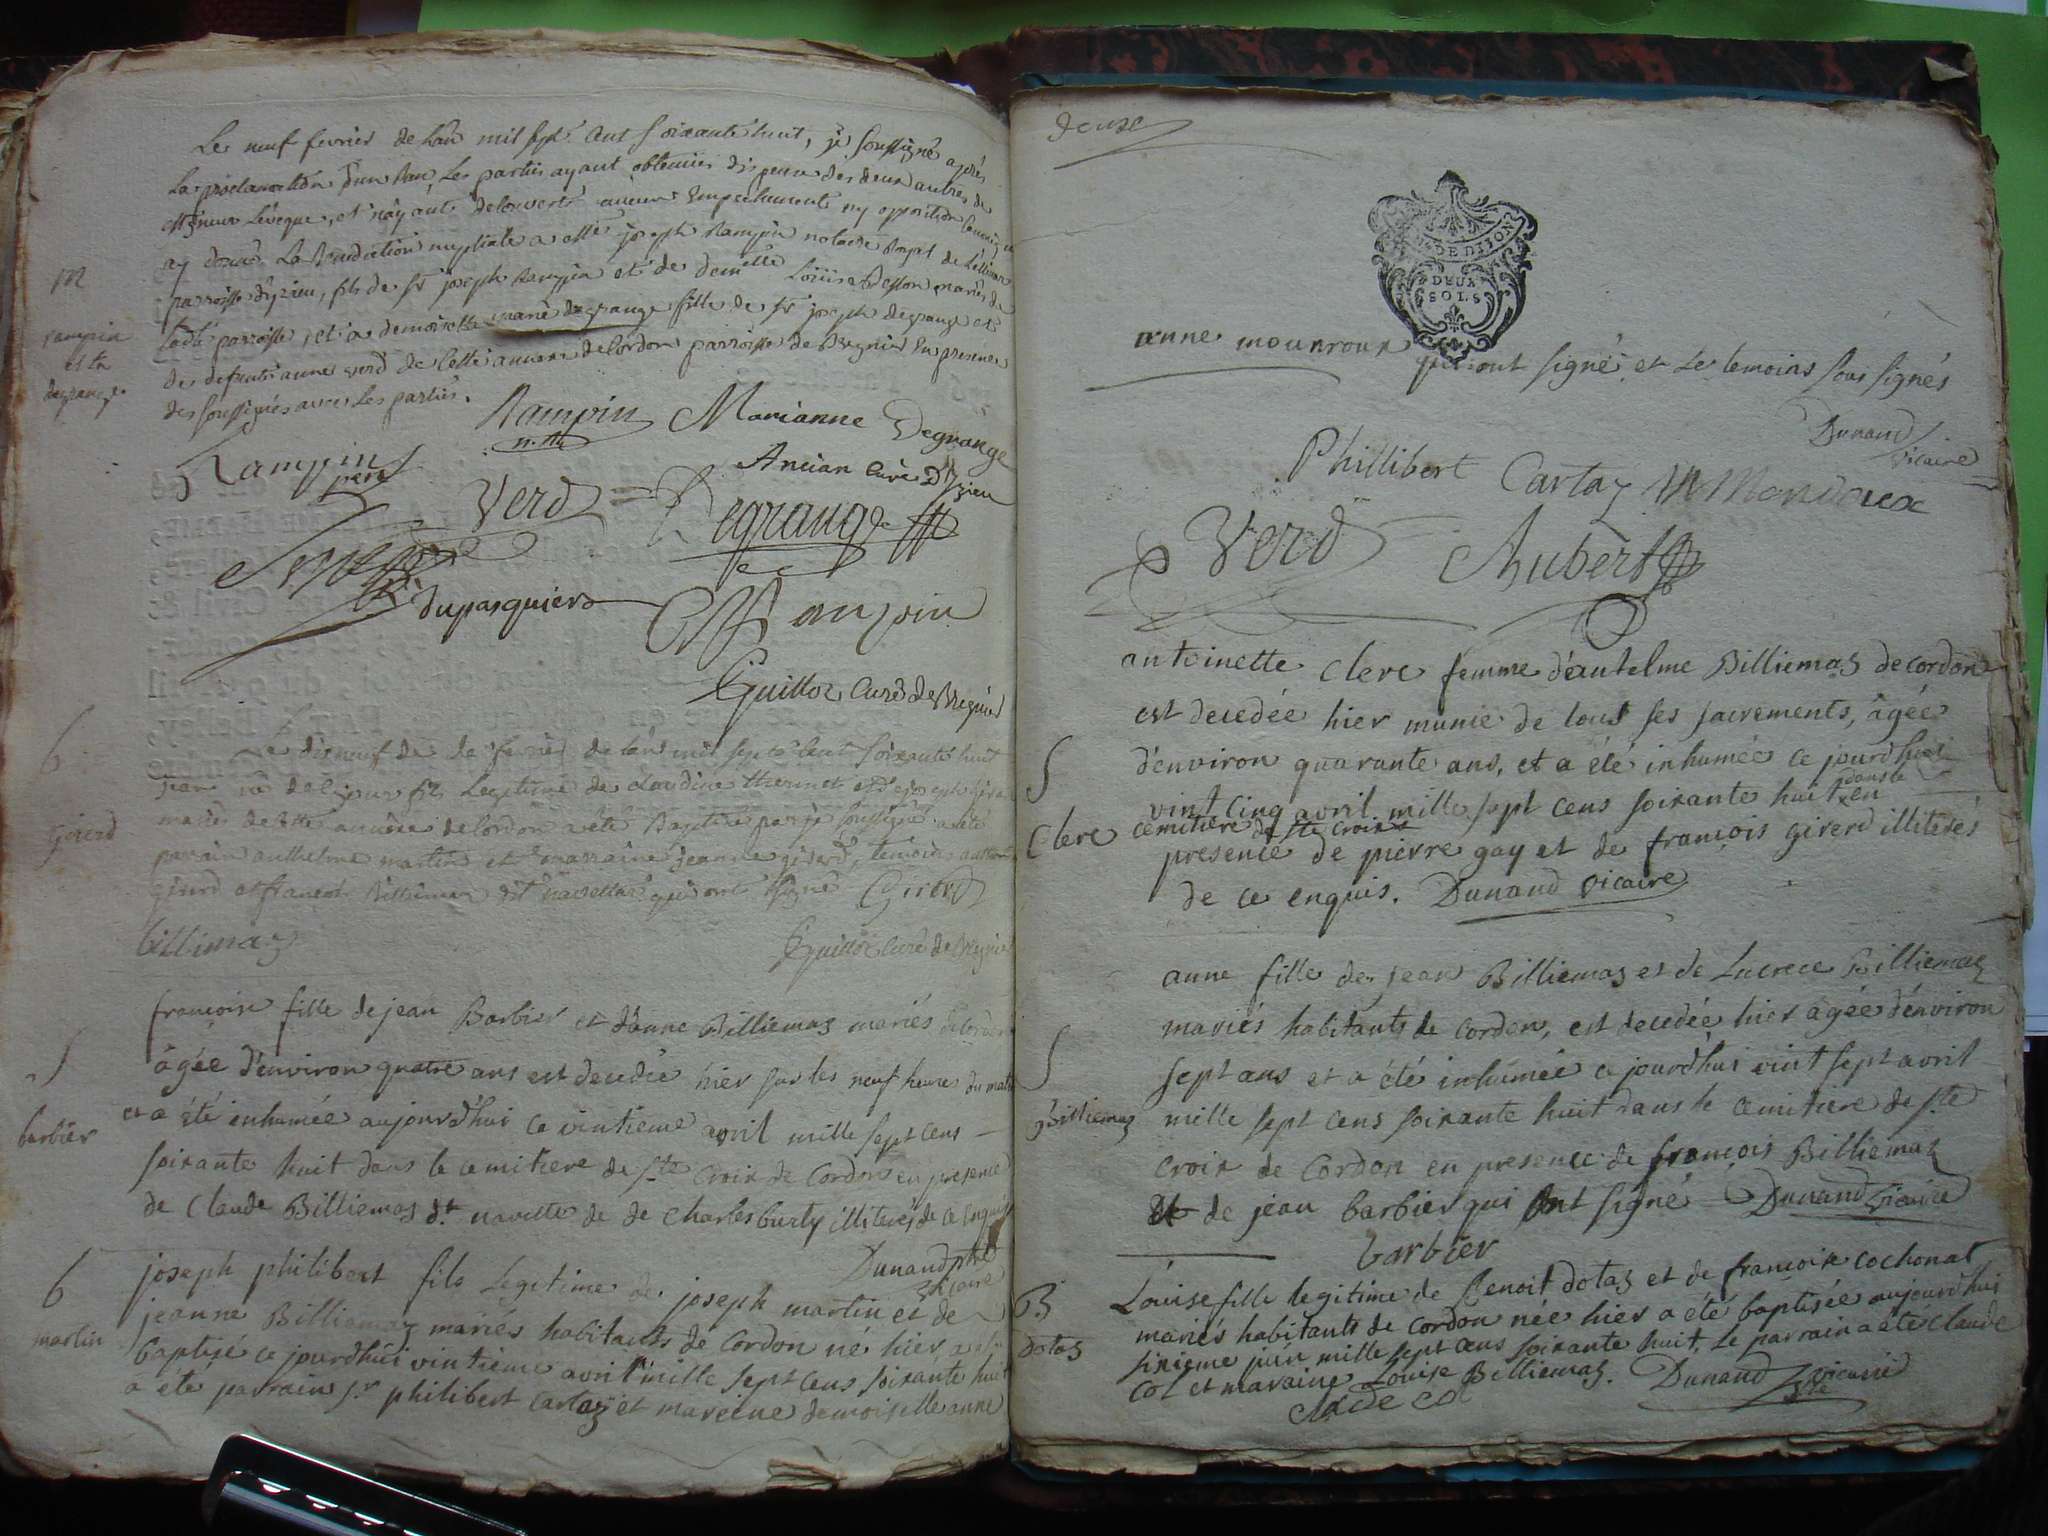 Le neuf fevrier de l'an mil sept cent soixante huit, je soussigné après
la proclamation d'un ban, les parties ayant obtenües dispense des deux autres de
Mgneur L'éveque, et n'ayant decouvert aucun empechement ny opposition
ay donné la benediction nuptiale a Mre joseph Rampin notaire Royal de
parroisse d'yzieu, fils de sr joseph Rampin et de demelle Loüise Besson mariés de
ladte parroisse, et a demoiselle marie degrange fille de sr joseph degrange et
de defunte anne verd de cette annexe de Cordon parroisse de Bregnier En presence
des soussignés avec les parties.
M
rampin
et la
degrange
Rampin Marianne Degrange
n.re
Rampin
pere
Ancian Curé D'yzieu
Verd Degrange
dupasquier Rampin
Guillot Curé de Bregnier
Le disneuf de de fevrier de l'an mil sept cent soixante huit
né de ce jour fils Legitime de claudine thermet et de joseph
mariés de cette annexe de Cordon a été Baptisé par je soussigné a été
parrain anthelme martin et marraine jeanne giserd, temoins
girerd et francois Billiemaz dit navettaz qui ont signé Girerd
6
Girerd
billimaz
Guillot Curé de Bregnier
francoise fille de jean Barbier et d'anne Billiemaz mariés de Cordon
âgée d'environ quatre ans est decedée hier sur les neuf heures du matin
et a été inhumée aujourd'hui ce vintieme avril mille sept cens
soixante huit dans le cemitiere de Ste Croix de Cordon en presence
de Claude Billiemaz dt navette de de Charles burty illiterés de ce Enquis
S
barbier
Dunand ptre
Vicaire
joseph philibert fils Legitime de joseph martin et de
jeanne Billiemaz mariés habitants de Cordon né hier a été
baptisé ce jourdhüi vintieme avril mille sept cens soixante huit
a été parrain sr philibert Cartaz et mareine demoiselle anne
6
martin
deuse
DE DIJON
DEUX
SOLS
anne mounroux
qui ont signé et les temoins sous signés
Dunand
Vicaire
Phillibert Cartaz M Mondoux
Verd Aubert
antoinette Clerc femme d'eantelme Billiemaz de cordon
est decedée hier munie de tous ses sacrements, âgée
d'environ quarante ans, et a été inhumée ce jourdhui
vint cinq avril mille sept cens soixante huit dans le en
cemitiere de Ste Croix
presence de pierre gay et de françois girerd illiterés
de ce enquis. Dunand Vicaire
S
Clerc
anne fille de jean Billiemaz et de Lucrece Billiemaz
mariés habitants de cordon, est decedée hier agée d'environ
sept ans et a été inhumée ce jourd'hui vint sept avril
mille sept cens soixante huit dans le cemitiere de Ste
Croix de Cordon en presence de françois Billiemaz
Et de jean barbier qui Ont signé Dunand Vicaire
S
Billiemaz
barbier
Louise fille legitime de Benoit dotaz et de francoise cochonat
mariés habitants de Cordon née hier a été baptisée aujourd'hui
sixieme juin mille sept cens soixante huit, le parrain a été claude
Col et maraine Louise Billiemaz. Dunand Vicaire
B
dotaz
clade col